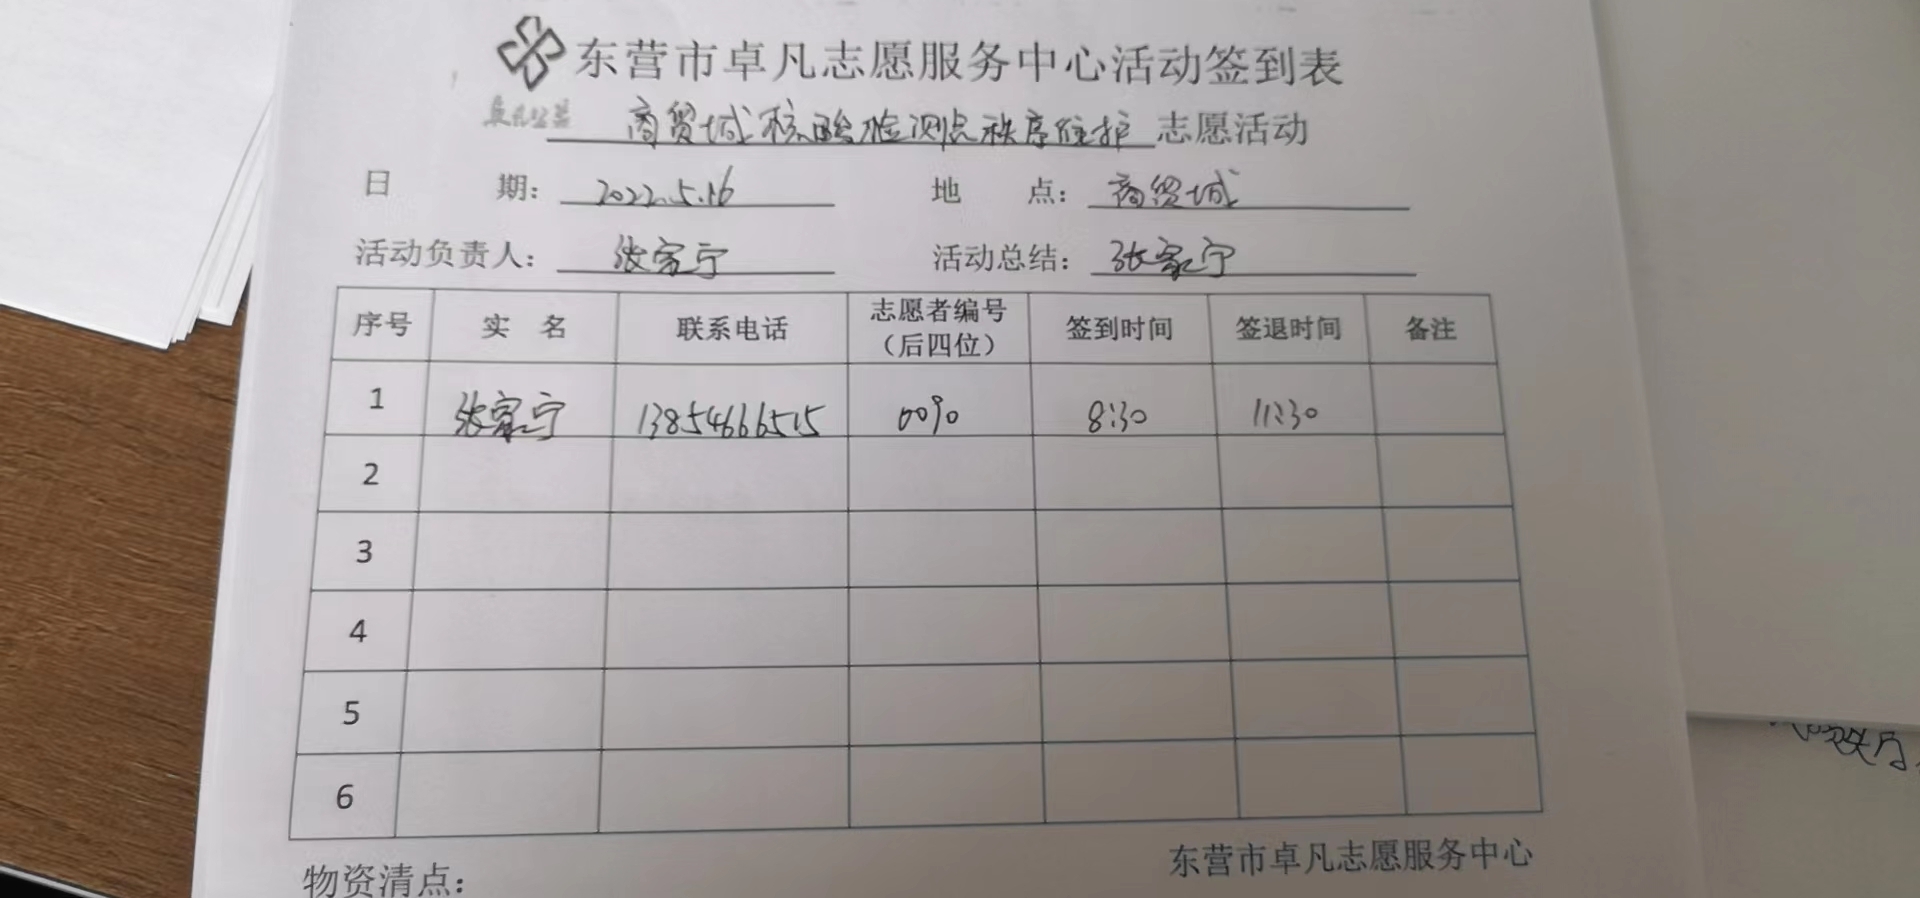 东营市卓凡志愿服务中心活动签到表
卓凡公益
商贸城核酸检测点秩序维护志愿活动
日 期： 2022.5.16 地 点： 商贸城
活动负责人： 张家宁 活动总结： 张家宁
序号 实 名 联系电话 志愿者编号（后四位） 签到时间 签退时间 备注
1 张家宁 13854666515 0090 8:30 11:30
2
3
4
5
6
东营市卓凡志愿服务中心
物资清点：